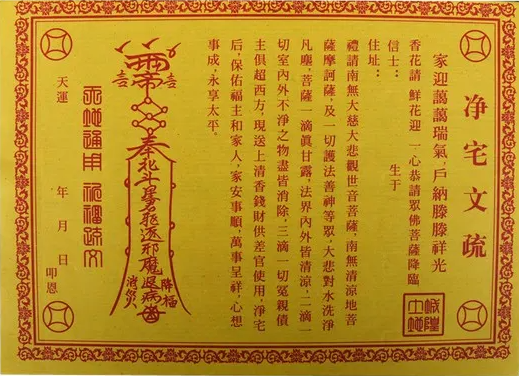 净宅文疏
家迎藹藹瑞氣，戶納滕滕祥光
香花請 鮮花迎 一心恭請眾佛菩薩降臨
信士： 生于
住址：
禮請南無大慈大悲觀世音菩薩，南無清涼地菩
薩摩訶薩，及一切護法善神等眾，大悲對水洗淨
凡塵，菩薩一滴真甘露，法界內外皆清涼，二滴一
切室內外不淨之物盡皆消除，三滴一切冤親債
主俱超西方，現送上清香錢財供差官使用，淨宅
后，保佑福主和家人，家安事順，萬事呈祥，心想
事成，永享太平。
喜 喜
奉北斗 邪魔退病
降福
天運 年 月 日 叩恩